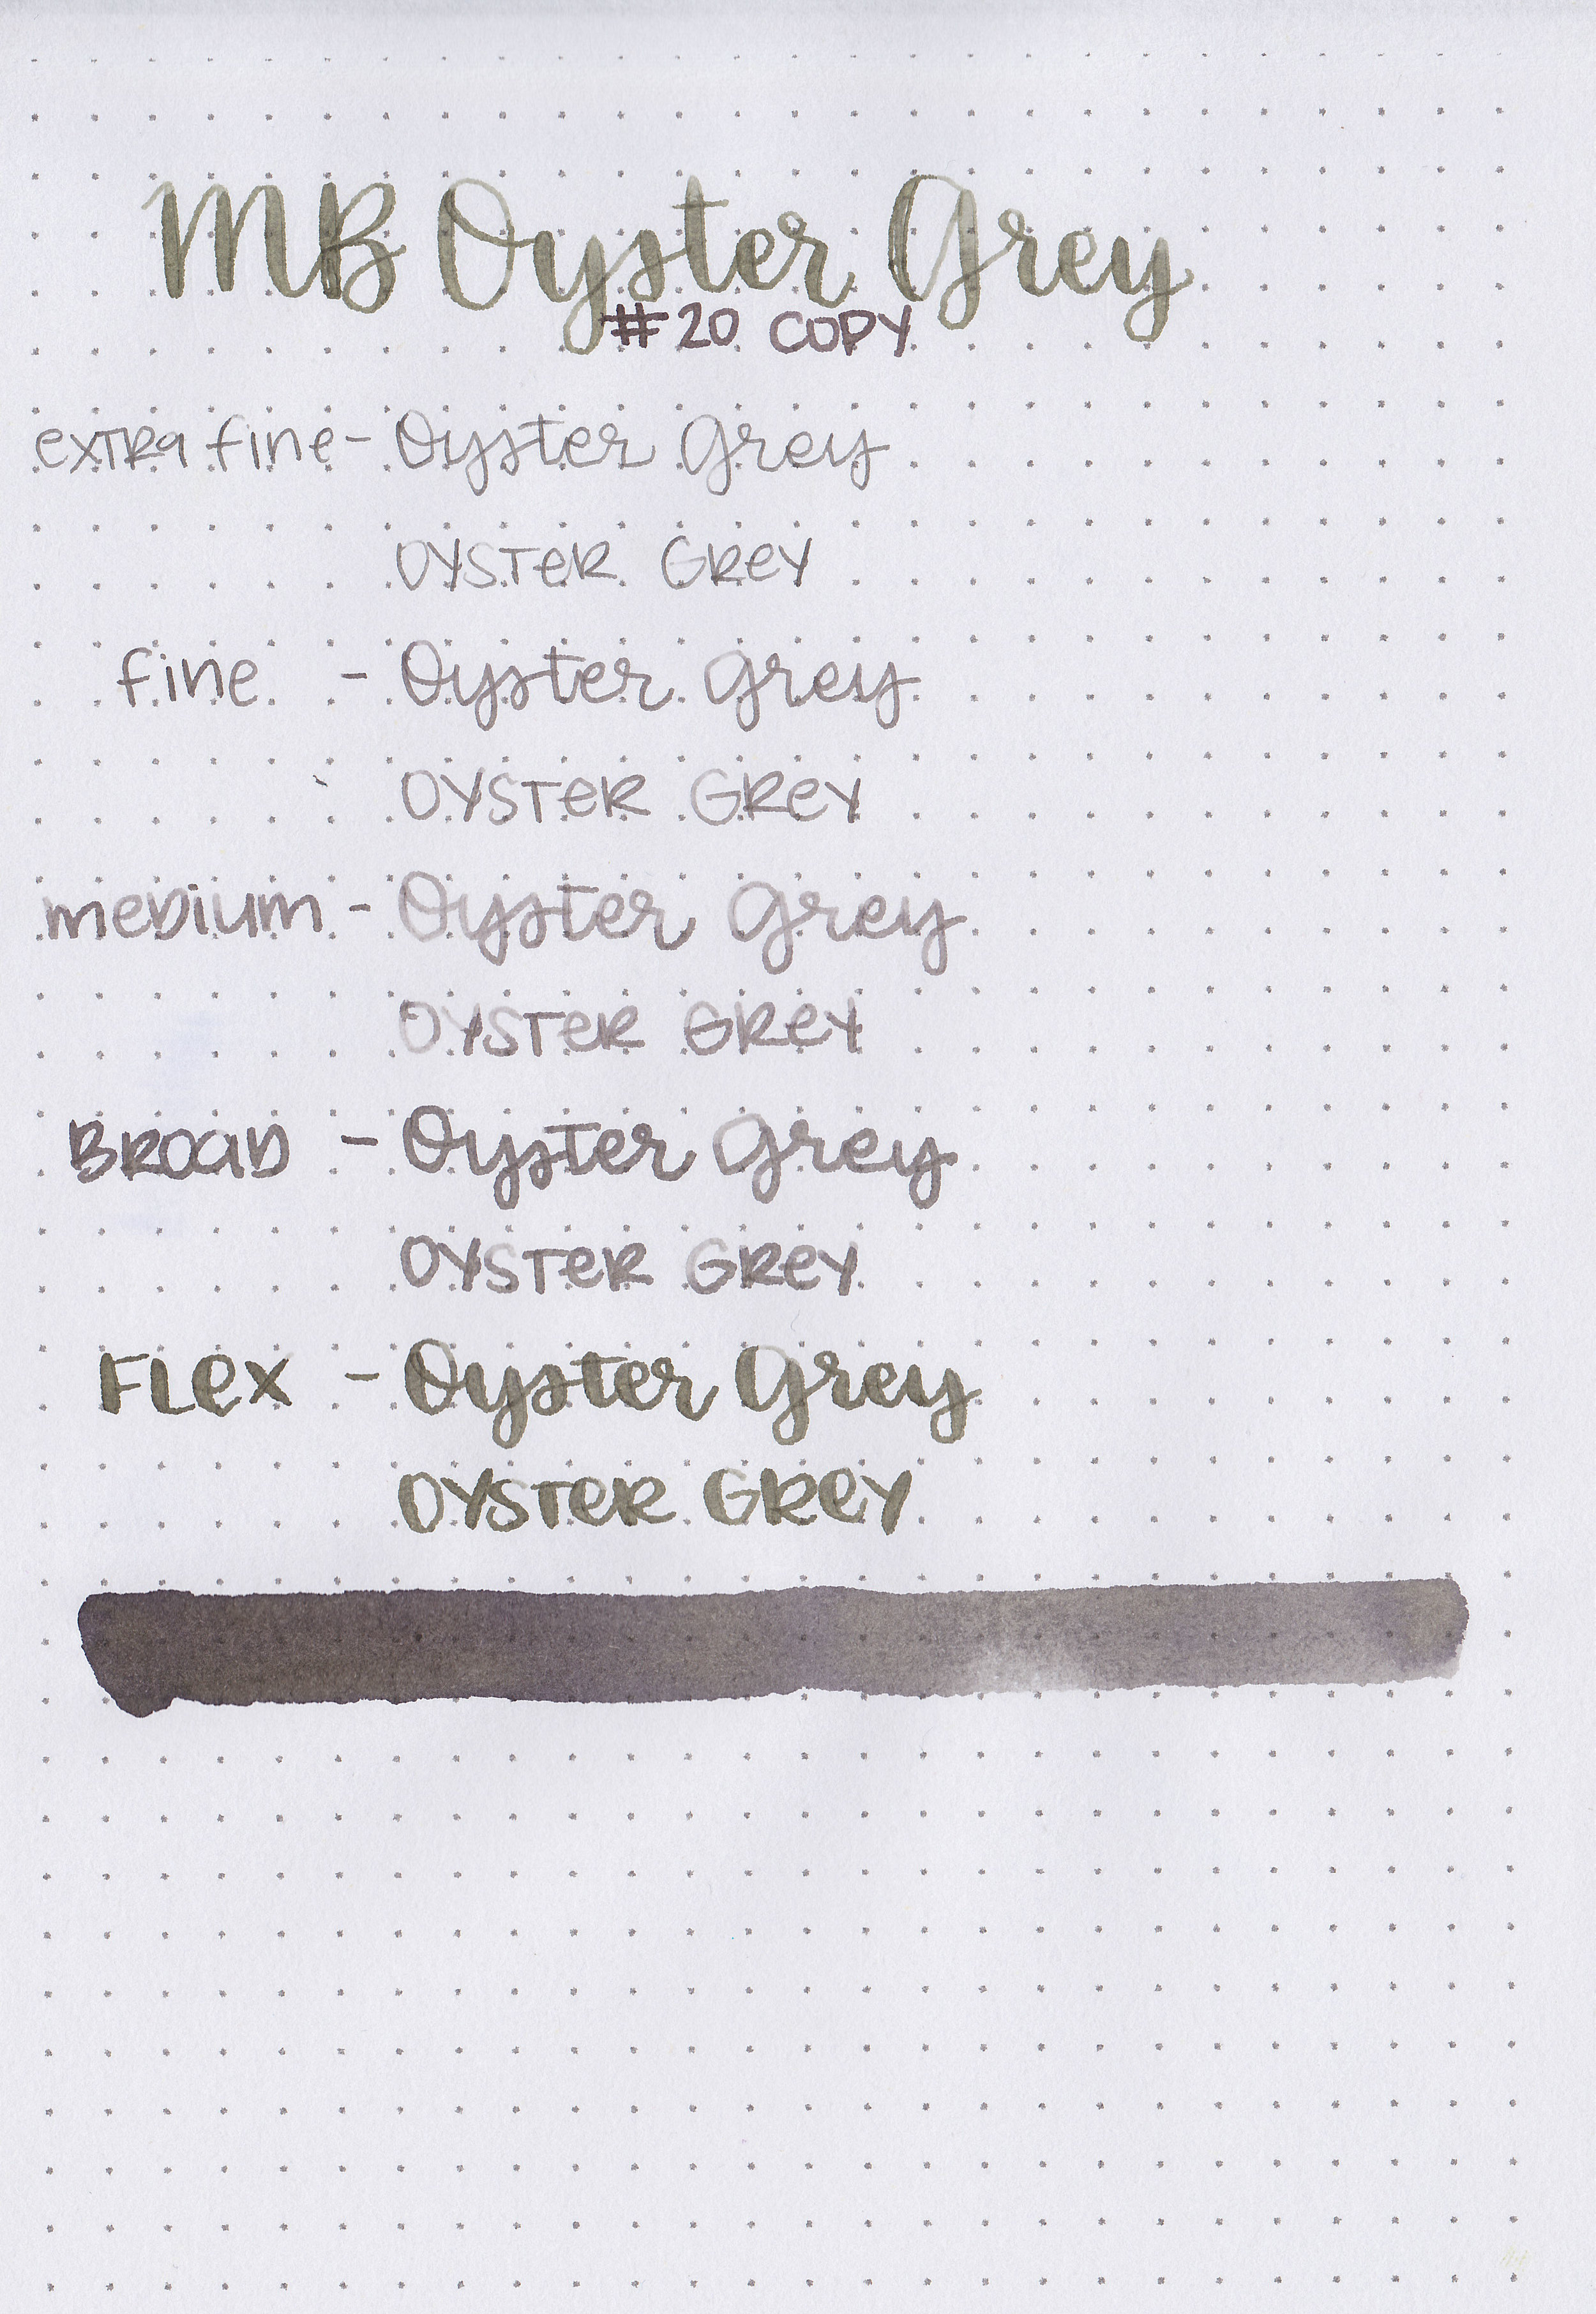 MB Oyster Grey
#20 COPY
exTRa fine - Oyster Grey
OYSTeR GReY
fine - Oyster Grey
OYSTeR GReY
meDium - Oyster Grey
OYSTeR GReY
BROaD - Oyster Grey
OYSTeR GReY
FLex - Oyster Grey
OYSTeR GReY